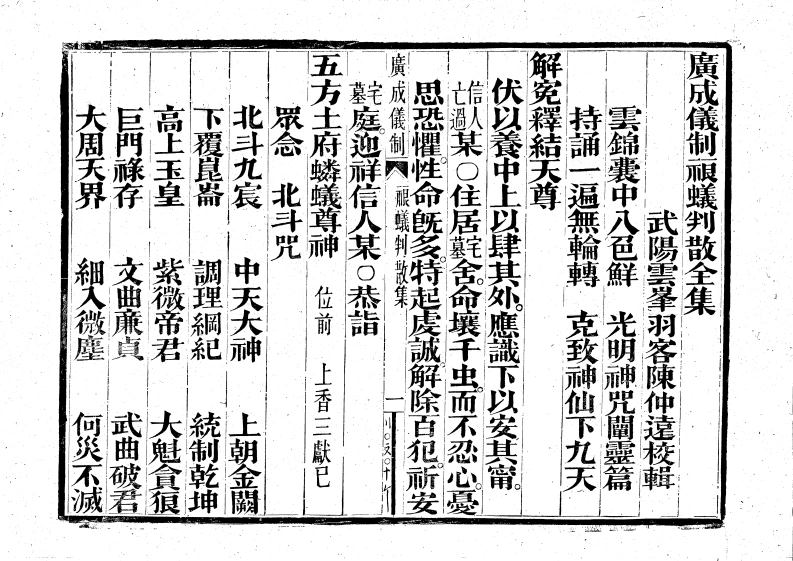 廣成儀制禳蟻判散全集
武陽雲峯羽客陳仲遠校輯
雲錦囊中入色鮮 光明神咒闡靈篇
持誦一遍無輪轉 克致神仙下九天
解寃釋結天尊
伏以養中上以肆其外。應識下以安其甯。
信人亡過某〇住居宅墓舍。命壤千虫。而不忍心。憂
思恐懼。性命旣多。特起虔誠。解除百犯。祈安
廣成儀制 禳蟻判散集 一
宅墓庭。迎祥信人某〇恭詣
五方土府蟒蟻尊神 位前 上香三獻已
眾念 北斗咒
北斗九宸 中天大神 上朝金闕
下覆崑崙 調理綱紀 統制乾坤
高上玉皇 紫微帝君 大魁貪狼
巨門祿存 文曲廉貞 武曲破君
大周天界 細入微塵 何災不滅